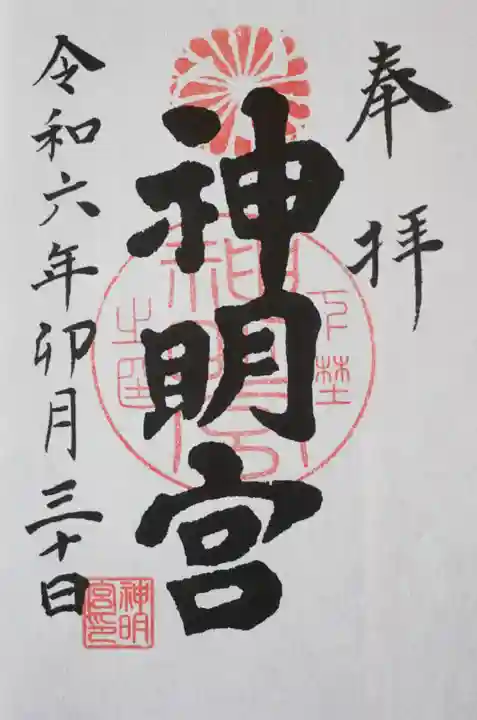 奉拝
神明宮
令和六年卯月三十日
神明
宮印